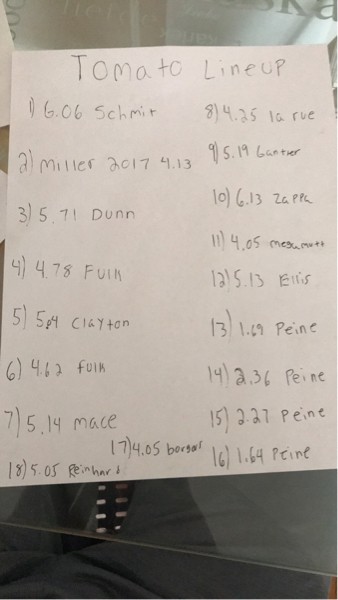 Tomato Lineup
1) 6.06 Schmit
2) Miller 2017 4.13
3) 5.71 Dunn
4) 4.78 Fulk
5) 5.04 Clayton
6) 4.62 Fulk
7) 5.14 mace
18) 5.05 Reinhard
17) 4.05 borgers
8) 4.25 la rue
9) 5.19 Gantner
10) 6.13 Zappa
11) 4.05
12) 5.13 Ellis
13) 1.69 Peine
14) 2.36 Peine
15) 2.27 Peine
16) 1.64 Peine